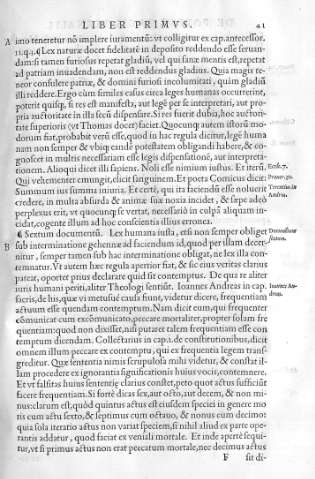 LIBER PRIMVS. 41
A imo teneretur nõ implere iuramentũ: vt colligitur ex cap. antecessor.
11.q.1. ¶ Lex naturæ docet fidelitatẽ in deposito reddendo esse seruan-
dam: si tamen furiosus repetat gladiũ, vel qui sanæ mentis est, repetat
ad patriam inuadendam, non est reddendus gladius. Quia magis te-
neor consulere patriæ, & domini furiosi incolumitati, quàm gladiũ
illi reddere. Ergo cùm similes casus circa leges humanas occurrerint,
poterit quisq; si res est manifesta, aut legẽ per se interpretari, aut pro-
pria auctoritate in illa secũ dispensare. Si res fuerit dubia, hoc auctori-
tate superioris (vt Thomas docet) faciet. Quocunq; autem istorũ mo-
dorum fiat, probabit verũ esse, quod in hac regula dicitur, legẽ huma
nam non semper & vbiq; eandẽ potestatem obligandi habere, & co-
gnoscet in multis necessariam esse legis dispensationẽ, aut interpreta-
tionem. Alioqui dicet illi sapiens. Noli esse nimium iustus. Et iterũ. Eccle.7.
Qui vehementer emungit, elicit sanguinem. Et poeta Comicus dicit: Prouer.30.
Summum ius summa iniuria. Et certè, qui ita faciendũ esse noluerit Terentius in
credere, in multa absurda & animæ suæ noxia incidet, & sæpe adeò Andria.
perplexus erit, vt quocunq; se vertat, necessariò in culpã aliquam in-
cidat, cogente illum ad hoc conscientia illius erronea.
¶ Sextum documentũ. Lex humana iusta, etsi non semper obliget
B sub interminatione gehennæ ad faciendum id, quod per illam decer-
nitur, semper tamen sub hac interminatione obligat, ne lex illa con-
temnatur. Vt autem hæc regula aperiùr fiat, & sic eius veritas clarius
pateat, oportet prius declarare quid sit contemptus. De qua re aliter
iuris humani periti, aliter Theologi sentiũt. Ioannes Andreas in cap.
quentiam: quod non dixisset, nisi putaret talem frequentiam esse con
temptum dicendam. Collectarius in cap. 1. de constitutionibus, dicit
omnem illum peccare ex contemptu, qui ex frequentia legem trans-
greditur. Quæ sententia nimis scrupulosa mihi videtur, & constat il-
lam procedere ex ignorantia significationis huius vocis, contemnere.
Et vt falsitas huius sententiæ clarius constet, peto quot actus sufficiũt
facere frequentiam. Si fortè dicas sex, aut octo, aut decem, & non mi-
nus: clarum est, quòd quintus actus est eiusdem speciei in genere mo
ris cum actu sexto, & septimus cum octauo, & nonus cum decimo:
quia sola iteratio actus non variat speciem, si nihil aliud ex parte ope-
rantis addatur, quod faciat ex veniali mortale. Et inde apertè sequi-
tur, vt si primus actus non erat peccatum mortale, nec decimus actus
F sit di-